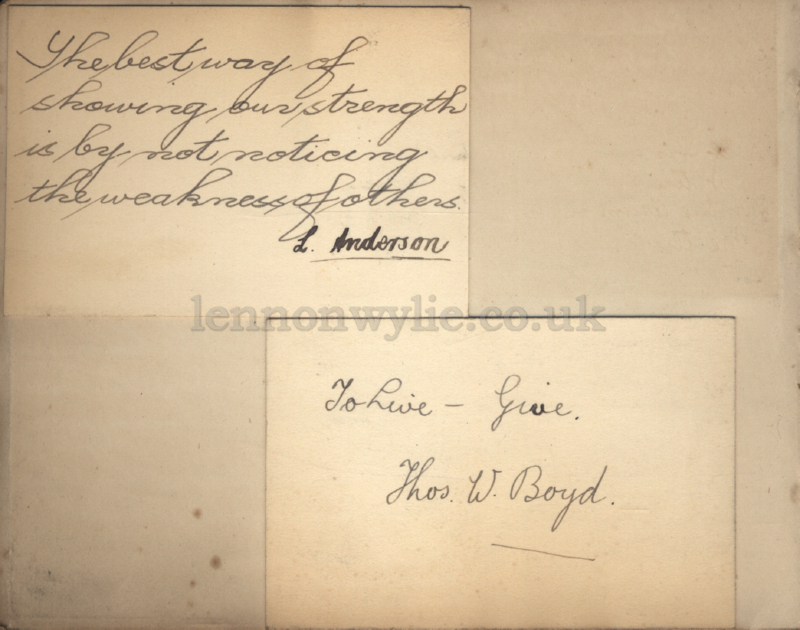 The best way of
showing our strength
is by not noticing
the weakness of others.
L. Anderson
lennonwylie.co.uk
To Live – Give.
Thos. W. Boyd.